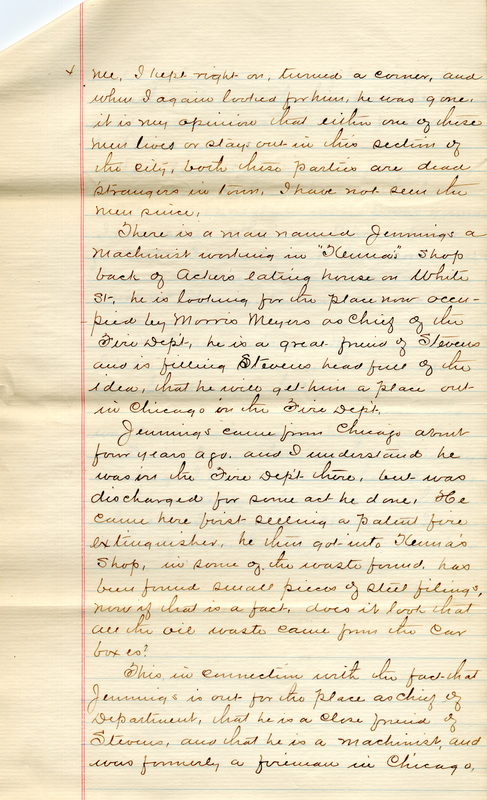 me, I kept right on, turned a corner, and
when I again looked for him, he was gone,
it is my opinion that either one of these
men lives or stays out in this section of
the city, both these parties are dead
strangers in town, I have not seen the
men since,
There is a man named Jennings a
Machinist working in "Kenna's" Shop
back of Ackers eating house on White
St, he is looking for the place now occu-
pied by Morris Meyers as Chief of the
Fire Dep't, he is a great friend of Stevens
and is filling Stevens head full of the
idea, that he will get him a place out
in Chicago on the Fire Dept,
Jennings came from Chicago about
four years ago, and I understand he
was on the Fire Dep't there, but was
discharged for some act he done, He
came here first selling a patent fire
extinguisher, he then got into Kenna's
Shop, in some of the waste found, has
been found small pieces of steel filings,
now if that is a fact, does it look that
all the oil waste came from the Car
boxes?
This in connection with the fact that
Jennings is out for the place as Chief of
Department, that he is a close friend of
Stevens, and that he is a machinist, and
was formerly a fireman in Chicago,